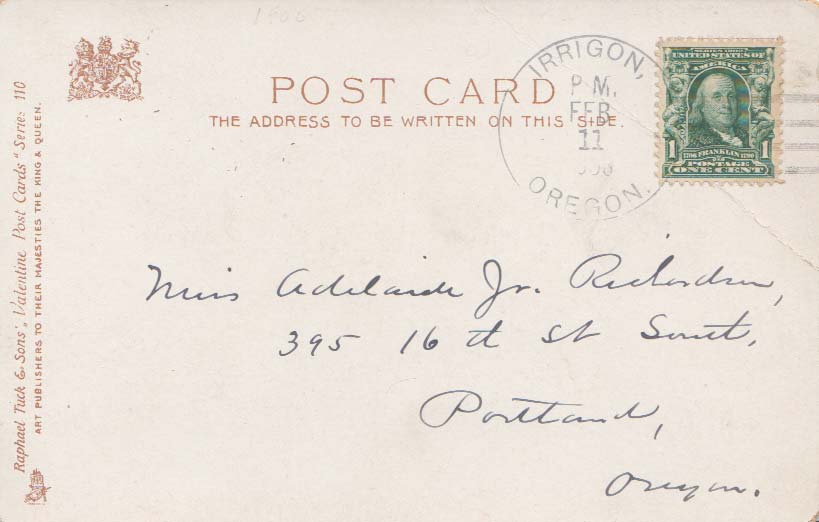 1906
POST CARD
THE ADDRESS TO BE WRITTEN ON THIS SIDE.
IRRIGON,
P M.
FEB
11
OREGON.
SERIES 1902
UNITED STATES OF
AMERICA
1 1706 FRANKLIN 1790 1
POSTAGE
ONE CENT
Miss Adelaide Jr. Richardson,
395 16 th St South,
Portland,
Oregon.
Raphael Tuck & Sons', "Valentine Post Cards" Series 110
ART PUBLISHERS TO THEIR MAJESTIES THE KING & QUEEN.